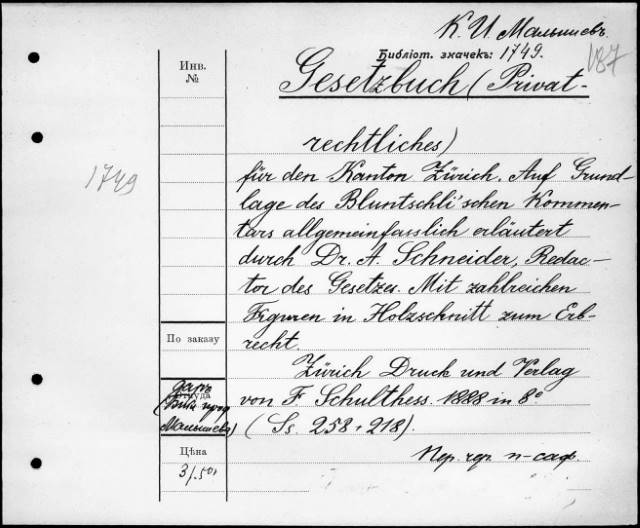 К. И. Малышевъ
Библіот. значекъ: 1749.
187
Инв.
№
Gesetzbuch (Privat-
rechtliches)
1749
für den Kanton Zürich. Auf Grund-
lage des Bluntschli'schen Kommen-
tars allgemeinfasslich erläutert
durch Dr. A. Schneider, Redac-
tor des Gesetzes. Mit zahlreichen
Figuren in Holzschnitt zum Erb-
recht.
По заказу
Zürich Druck und Verlag
von F. Schulthess. 1888 in 8°
(Ss. 258 + 218).
Откуда
даръ
Малышева)
Цѣна
3 р. 50 к
Пер. чер. п-саф.